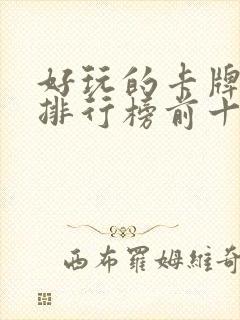 好玩的卡牌
排行榜前十
西布罗姆維奇